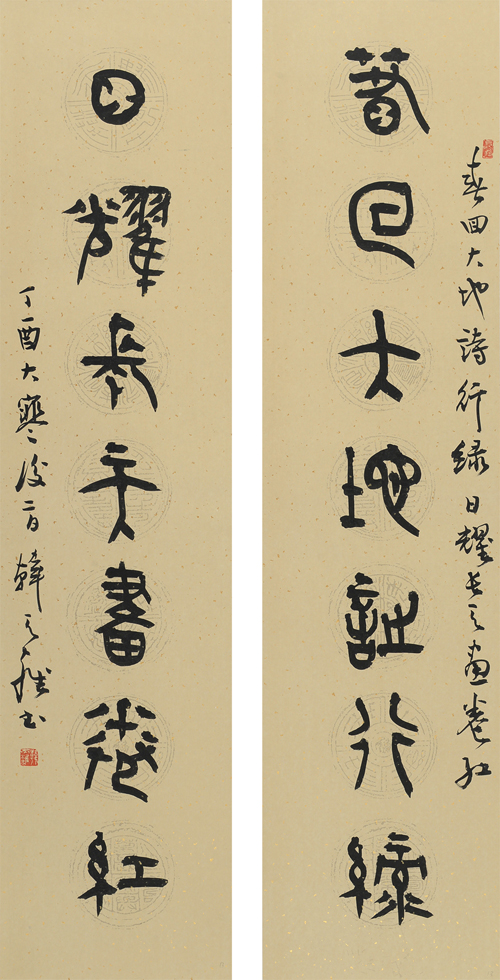 春回大地詩行綠日耀長天畫卷紅
春回大地詩行綠
日耀長天畫卷紅
丁酉大寒後二日韓天雍書